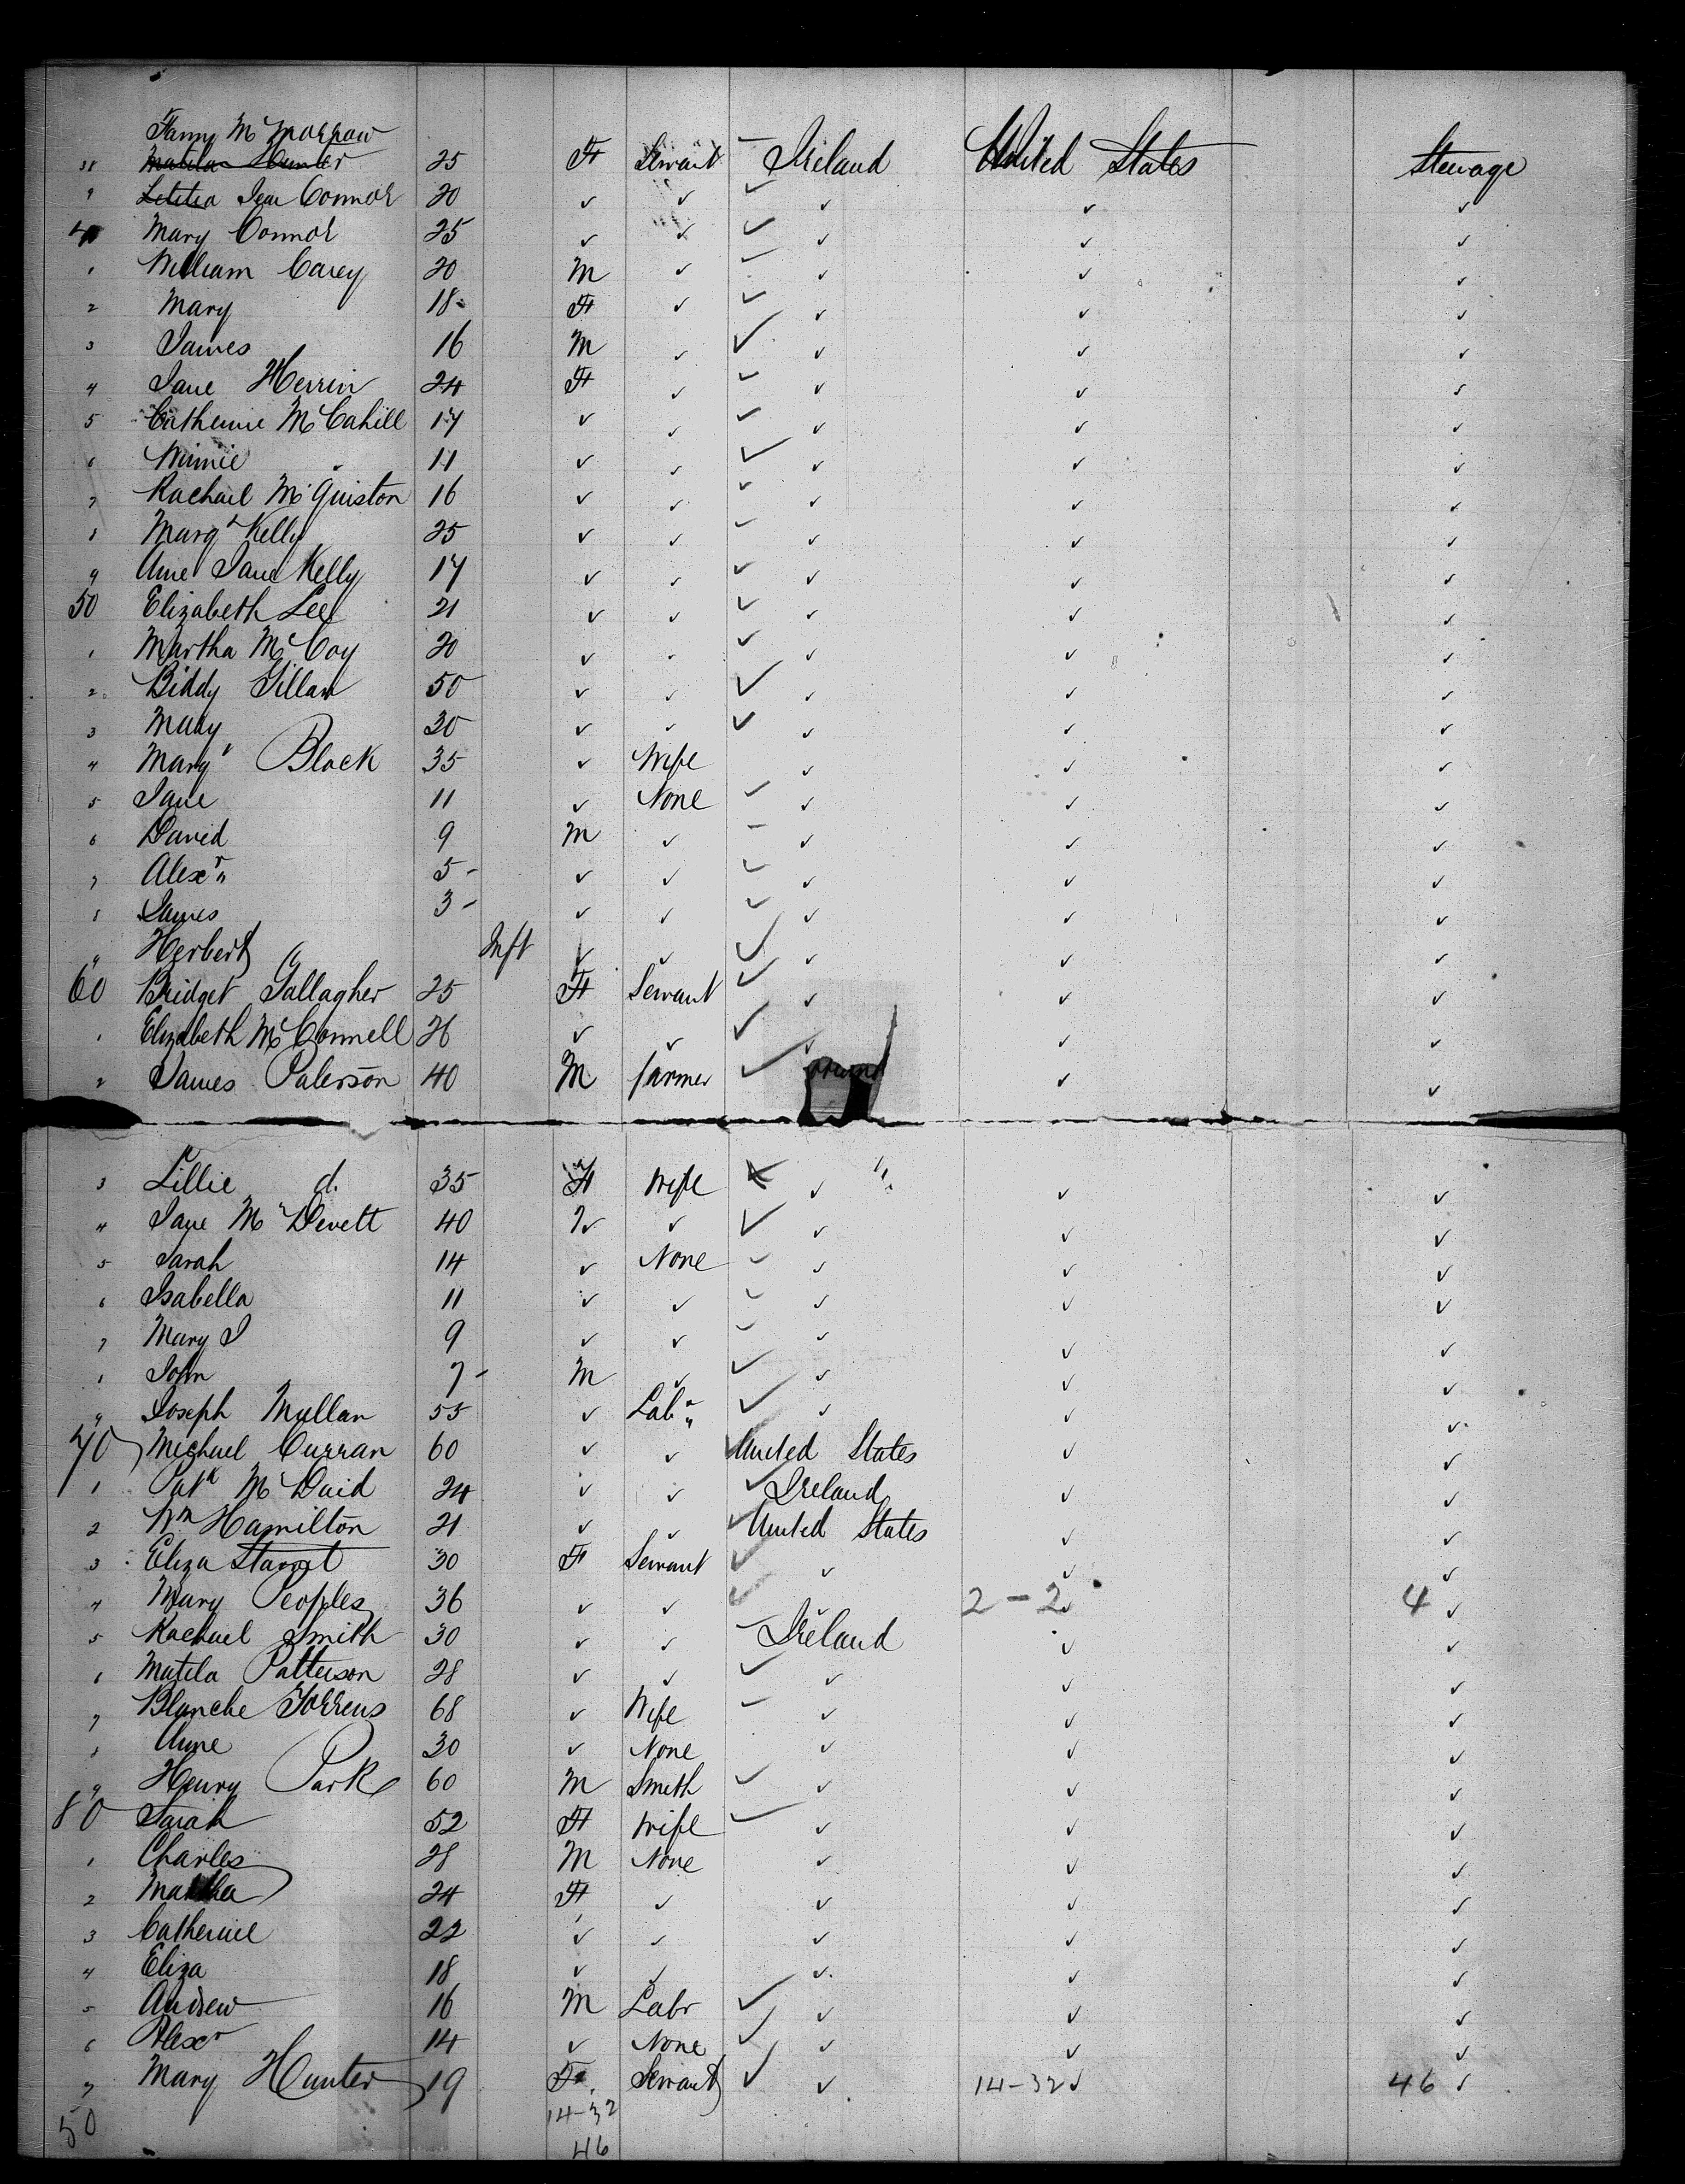 Fanny McMorrow
38 Matilda Hunter 25 F Servant Ireland United States Steerage
9 Letitia Jean Connor 20 ✓ ✓ ✓ ✓ ✓ ✓
40 Mary Connor 25 ✓ ✓ ✓ ✓ ✓ ✓
1 William Carey 20 M ✓ ✓ ✓ ✓ ✓
2 Mary 18 F ✓ ✓ ✓ ✓ ✓
3 James 16 M ✓ ✓ ✓ ✓ ✓
4 Jane Herrin 24 F ✓ ✓ ✓ ✓ ✓
5 Catherine McCahill 17 ✓ ✓ ✓ ✓ ✓ ✓
6 Minnie 11 ✓ ✓ ✓ ✓ ✓ ✓
7 Rachael McQuiston 16 ✓ ✓ ✓ ✓ ✓ ✓
8 Margt Kelly 25 ✓ ✓ ✓ ✓ ✓ ✓
9 Anne Jane Kelly 17 ✓ ✓ ✓ ✓ ✓ ✓
50 Elizabeth Lee 21 ✓ ✓ ✓ ✓ ✓ ✓
1 Martha McCoy 20 ✓ ✓ ✓ ✓ ✓ ✓
2 Biddy Gillan 50 ✓ ✓ ✓ ✓ ✓ ✓
3 Mary 20 ✓ ✓ ✓ ✓ ✓ ✓
4 Margt Black 35 ✓ Wife ✓ ✓ ✓
5 Jane 11 ✓ None ✓ ✓ ✓ ✓
6 David 9 M ✓ – ✓ ✓ ✓
7 Alexr 5 – ✓ ✓ ✓ ✓ ✓ ✓
8 James 3 – ✓ ✓ ✓ ✓ ✓ ✓
9 Herbert Inft ✓ ✓ ✓ ✓ ✓ ✓
60 Bridget Gallagher 25 F Servant ✓ ✓ ✓ ✓
1 Elizabeth McConnell 26 ✓ ✓ ✓ ✓ ✓ ✓
2 James Paterson 40 M farmer ✓ ✓ ✓
3 Lillie d. 35 F Wife ✓ ✓ ✓
4 Jane McDevett 40 ✓ ✓ ✓ ✓ ✓ ✓
5 Sarah 14 ✓ None ✓ ✓ ✓ ✓
6 Isabella 11 ✓ ✓ ✓ ✓ ✓ ✓
7 Mary J 9 ✓ ✓ ✓ ✓ ✓ ✓
8 John 7 – M ✓ ✓ ✓ ✓ ✓
9 Joseph Mullan 55 ✓ Labr ✓ ✓ ✓ ✓
70 Michael Curran 60 ✓ ✓ United States ✓ ✓
1 Patk McDaid 24 ✓ ✓ ✓ Ireland ✓ ✓
2 Wm Hamilton 21 ✓ ✓ ✓ United States ✓ ✓
3 Eliza Starret 30 F Servant ✓ ✓ ✓ ✓
4 Mary Peoples 36 ✓ ✓ ✓ ✓ 2 – 2 ✓ 4 ✓
5 Rachael Smith 30 ✓ ✓ Ireland ✓ ✓
6 Matila Patterson 28 ✓ ✓ ✓ ✓ ✓ ✓
7 Blanche Torrens 68 ✓ Wife ✓ ✓ ✓ ✓
8 Anne 30 ✓ None ✓ ✓ ✓
9 Henry Park 60 M Smith ✓ ✓ ✓ ✓
80 Sarah 52 F Wife ✓ ✓ ✓ ✓
1 Charles 28 M None ✓ ✓ ✓
2 Martha 24 F ✓ ✓ ✓ ✓
3 Catherine 22 ✓ ✓ ✓ ✓ ✓
4 Eliza 18 ✓ ✓ ✓ ✓ ✓
5 Andrew 16 M Labr ✓ ✓ ✓ ✓
6 Alexr 14 ✓ None ✓ ✓ ✓ ✓
7 Mary Hunter 19 F Servant ✓ ✓ 14–32 ✓ 46 ✓
50 14–32
46